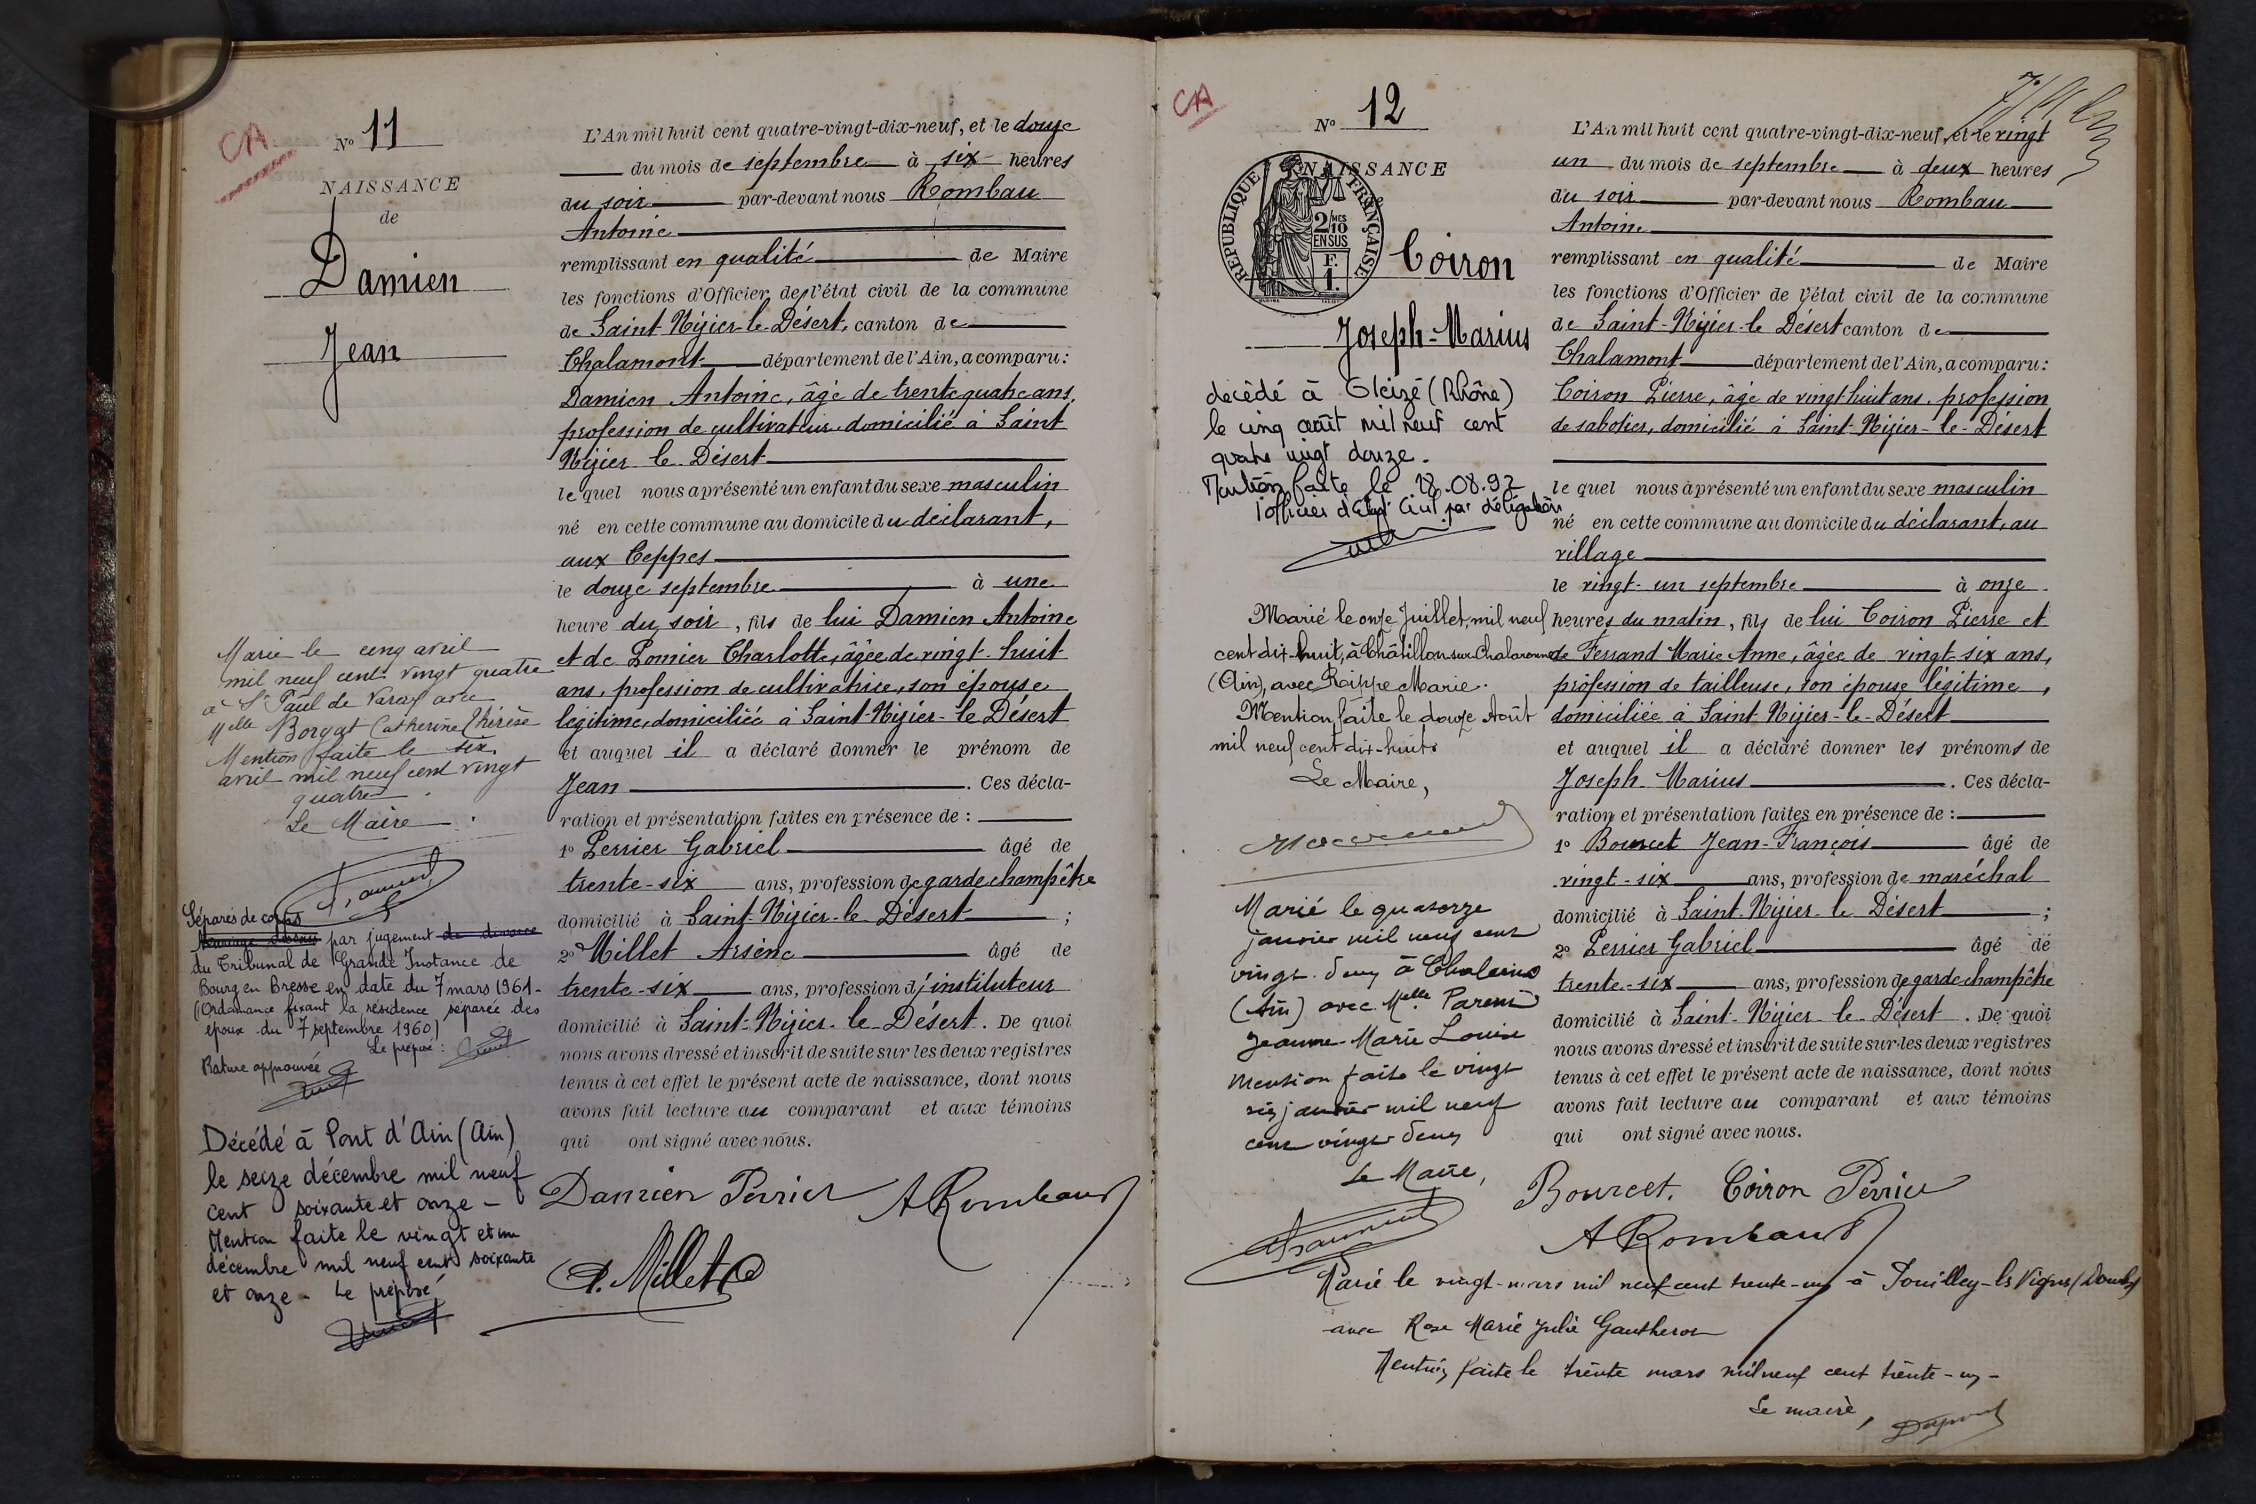 CA
N° 11
NAISSANCE
de
Damien
Jean
L'An mil huit cent quatre-vingt-dix-neuf, et le douze
du mois de septembre à six heures
du soir par-devant nous Rombau
Antoine
remplissant en qualité de Maire
les fonctions d'Officier de l'état civil de la commune
de Saint-Nizier-le-Désert, canton de
Chalamont département de l'Ain, a comparu:
Damien Antoine, âgé de trente quatre ans,
profession de cultivateur domicilié à Saint
Nizier le Désert
lequel nous a présenté un enfant du sexe masculin
né en cette commune au domicile du déclarant,
aux Ceppes
le douze septembre à une
heure du soir, fils de lui Damien Antoine
et de Pomier Charlotte, âgée de vingt-huit
ans, profession de cultivatrice, son épouse
légitime, domiciliée à Saint-Nizier-le Désert
et auquel il a déclaré donner le prénom de
Jean. Ces décla-
ration et présentation faites en présence de :
1° Perrier Gabriel âgé de
trente-six ans, profession de garde champêtre
domicilié à Saint-Nizier-le Désert ;
2° Millet Arsène âgé de
trente-six ans, profession d'instituteur
domicilié à Saint-Nizier-le-Désert. De quoi
nous avons dressé et inscrit de suite sur les deux registres
tenus à cet effet le présent acte de naissance, dont nous
avons fait lecture au comparant et aux témoins
qui ont signé avec nous.
Damien Perrier ARombaud
A. Millet
Marié le cinq avril
mil neuf cent vingt quatre
à St Paul de Varax avec
Melle Borgat Catherine Thérèse
Mention faite le six
avril mil neuf cent vingt
quatre.
Le Maire
Séparés de corps
par jugement de divorce
du Tribunal de Grande Instance de
Bourg en Bresse en date du 7 mars 1961-
(Ordonnance fixant la résidence séparée des
époux du 7 septembre 1960)
Le préposé :
Rature approuvée
Décédé à Pont d'Ain (Ain)
le seize décembre mil neuf
cent soixante et onze -
Mention faite le vingt et un
décembre mil neuf cent soixante
et onze - Le préposé
CA
N° 12
NAISSANCE
REPUBLIQUE FRANÇAISE
2/10 MES
EN SUS
F.
1.
Coiron
Joseph-Marius
L'An mil huit cent quatre-vingt-dix-neuf, et le vingt
un du mois de septembre à deux heures
du soir par-devant nous Rombau
Antoine
remplissant en qualité de Maire
les fonctions d'Officier de l'état civil de la commune
de Saint-Nizier-le Désert canton de
Chalamont département de l'Ain, a comparu:
Coiron Pierre, âgé de vingt huit ans, profession
de sabotier, domicilié à Saint-Nizier-le-Désert
lequel nous a présenté un enfant du sexe masculin
né en cette commune au domicile du déclarant, au
village
le vingt-un septembre à onze
heures du matin, fils de lui Coiron Pierre et
de Ferrand Marie Anne, âgée de vingt-six ans,
profession de tailleuse, son épouse légitime,
domiciliée à Saint-Nizier-le-Désert
et auquel il a déclaré donner les prénoms de
Joseph-Marius. Ces décla-
ration et présentation faites en présence de :
1° Bourcet Jean-François âgé de
vingt-six ans, profession de maréchal
domicilié à Saint-Nizier-le Désert ;
2° Perrier Gabriel âgé de
trente-six ans, profession de garde champêtre
domicilié à Saint-Nizier-le-Désert. De quoi
nous avons dressé et inscrit de suite sur les deux registres
tenus à cet effet le présent acte de naissance, dont nous
avons fait lecture au comparant et aux témoins
qui ont signé avec nous.
Bourcet. Coiron Perrier
ARombaud
décédé à Gleizé (Rhône)
le cinq août mil neuf cent
quatre vingt douze.
Mention faite le 18.08.92
l'officier d'Etat Civil par délégation
Marié le onze Juillet, mil neuf
cent dix-huit, à Châtillon sur Chalaronne
(Ain), avec Rippe Marie.
Mention faite le douze Août
mil neuf cent dix-huit
Le Maire,
Marié le quatorze
janvier mil neuf cent
vingt deux à Chaleins
(Ain) avec Melle Parent
Jeanne-Marie Louise
Mention faite le vingt
six janvier mil neuf
cent vingt deux
Le Maire,
Marié le vingt mars mil neuf cent trente-un à Pouilley-les Vignes (Doubs)
avec Rose Marie Julie Gautheron
Mention faite le trente mars mil neuf cent trente-un-
Le maire,